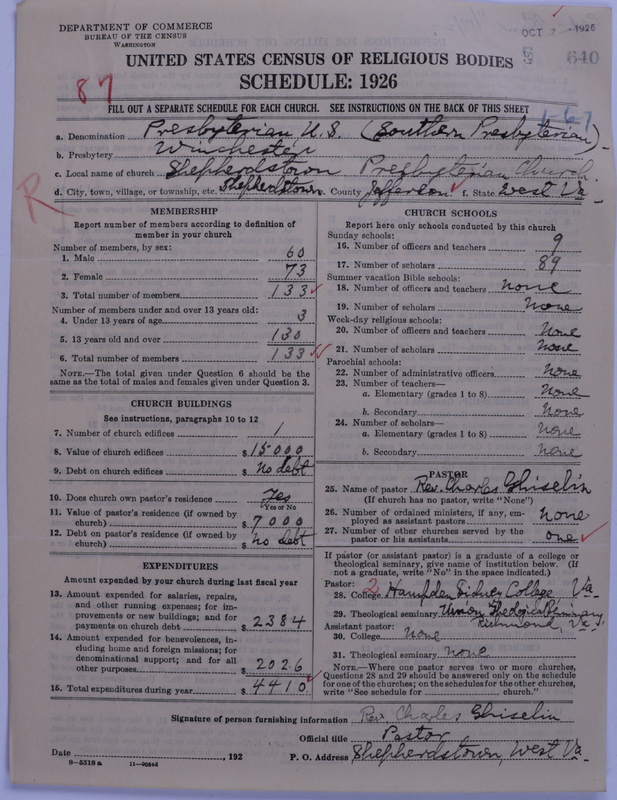 DEPARTMENT OF COMMERCE
BUREAU OF THE CENSUS
WASHINGTON
OCT 7 - 1926
640
UNITED STATES CENSUS OF RELIGIOUS BODIES
SCHEDULE: 1926
87
FILL OUT A SEPARATE SCHEDULE FOR EACH CHURCH. SEE INSTRUCTIONS ON THE BACK OF THIS SHEET
1-67
a. Denomination Presbyterian U.S. (Southern Presbyterian)
b. Presbytery Winchester
c. Local name of church Shepherdstown Presbyterian Church
d. City, town, village, or township, etc. Shepherdstown County Jefferson f. State West Va
R
MEMBERSHIP
Report number of members according to definition of member in your church
Number of members, by sex:
1. Male 60
2. Female 73
3. Total number of members 133
Number of members under and over 13 years old:
4. Under 13 years of age 3
5. 13 years old and over 130
6. Total number of members 133
NOTE.—The total given under Question 6 should be the same as the total of males and females given under Question 3.
CHURCH BUILDINGS
See instructions, paragraphs 10 to 12
7. Number of church edifices 1
8. Value of church edifices $15000
9. Debt on church edifices $ no debt
10. Does church own pastor's residence Yes
Yes or No
11. Value of pastor's residence (if owned by church) $7000
12. Debt on pastor's residence (if owned by church) $ no debt
EXPENDITURES
Amount expended by your church during last fiscal year
13. Amount expended for salaries, repairs, and other running expenses; for improvements or new buildings; and for payments on church debt $2384
14. Amount expended for benevolences, including home and foreign missions; for denominational support; and for all other purposes $2026
15. Total expenditures during year $4410
CHURCH SCHOOLS
Report here only schools conducted by this church
Sunday schools:
16. Number of officers and teachers 9
17. Number of scholars 89
Summer vacation Bible schools:
18. Number of officers and teachers none
19. Number of scholars None
Week-day religious schools:
20. Number of officers and teachers None
21. Number of scholars None
Parochial schools:
22. Number of administrative officers None
23. Number of teachers—
a. Elementary (grades 1 to 8) None
b. Secondary None
24. Number of scholars—
a. Elementary (grades 1 to 8) None
b. Secondary None
PASTOR
25. Name of pastor Rev. Charles Ghiselin
(If church has no pastor, write "None")
26. Number of ordained ministers, if any, employed as assistant pastors none
27. Number of other churches served by the pastor or his assistants one
If pastor (or assistant pastor) is a graduate of a college or theological seminary, give name of institution below. (If not a graduate, write "No" in the space indicated.)
Pastor:
28. College 2 Hampden Sidney College Va
29. Theological seminary Union Theological Seminary, Richmond, Va.
Assistant pastor:
30. College None
31. Theological seminary none
NOTE.—Where one pastor serves two or more churches, Questions 28 and 29 should be answered only on the schedule for one of the churches; on the schedules for the other churches, write "See schedule for church."
Signature of person furnishing information Rev. Charles Ghiselin
Official title Pastor
Date , 192 P. O. Address Shepherdstown, West Va
8—5518 a 11—9056d